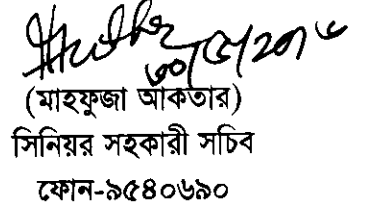 ৩০/৫/২০১৮
(মাহফুজা আকতার)
সিনিয়র সহকারী সচিব
ফোন-৯৫৪০৬৯০